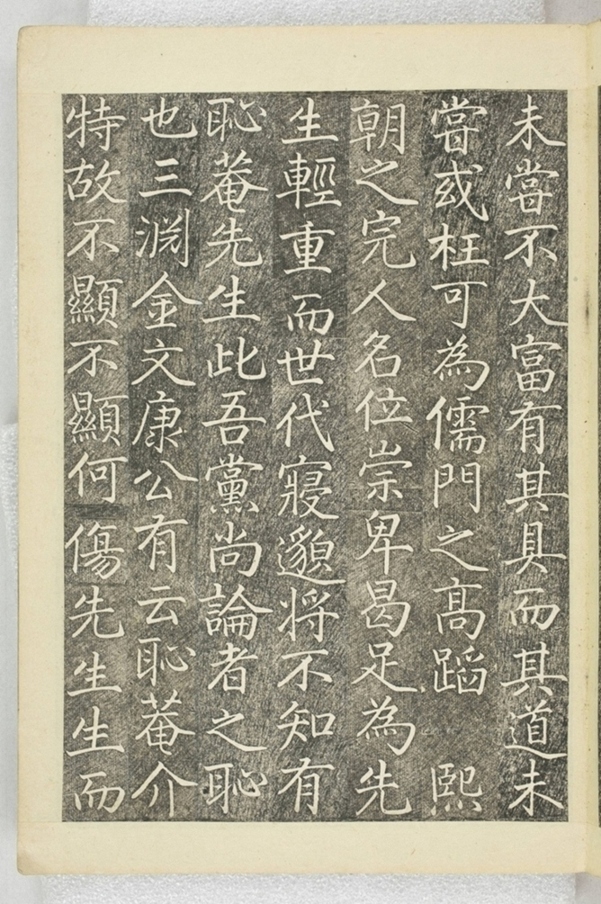 未嘗不大富有其具而其道未
嘗或枉可為儒門之高蹈 熙
朝之完人名位崇卑曷足為先
生輕重而世代寖邈将不知有
恥菴先生此吾黨尚論者之恥
也三淵金文康公有云恥菴介
特故不顯不顯何傷先生生而